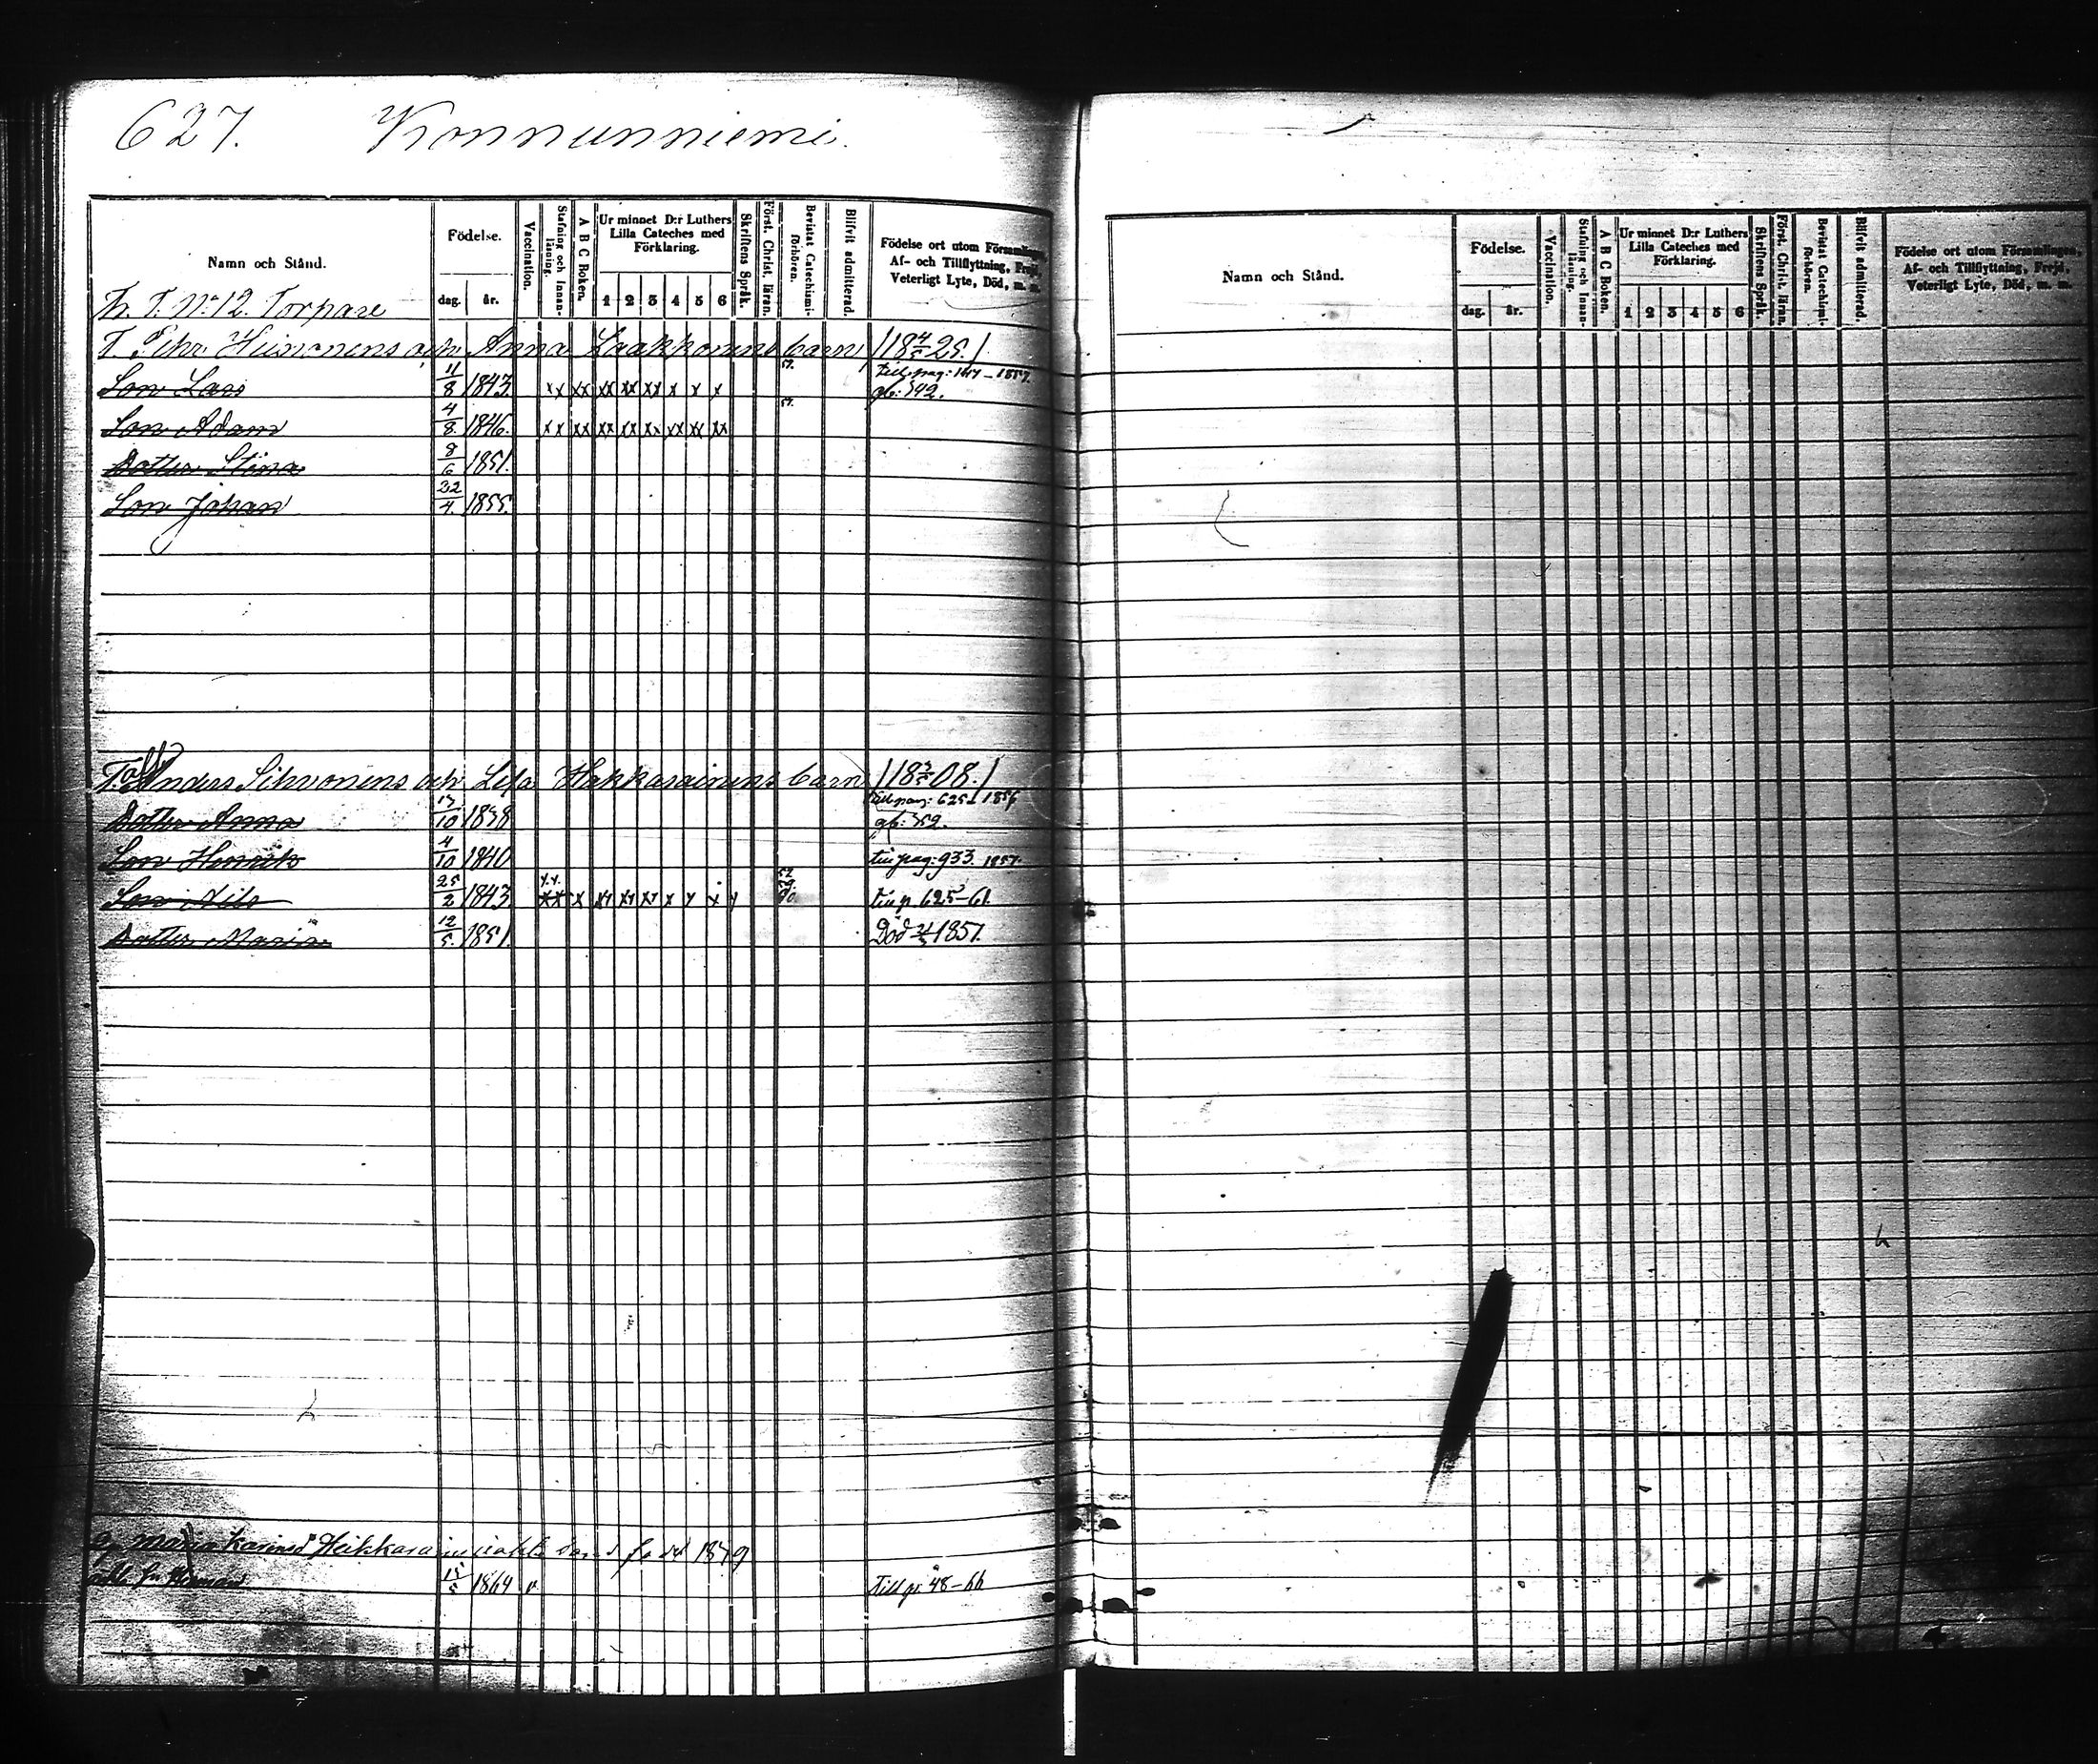 627. Konnunniemi.
Namn och Stånd.
Födelse.
dag. år.
Vaccination.
Stafning och Innanläsning.
A B C Boken.
Ur minnet D:r Luthers Lilla Cateches med Förklaring.
1 2 3 4 5 6
Skriftens Språk.
Först. Christ. läran.
Bevistat Catechismiförhören.
Blifvit admitterad.
Födelse ort utom Församlingen,
Af- och Tillflyttning, Frejd,
Veterligt Lyte, Död, m. m.
T. N:o 12. Torpare
T. Pehr Heinonens och Anna Laakkonens barn /18 4/5 25./
Son Lars 11/8 1843. xx xx xx xx xx x x x 57. till pag: 1857.
gb: 342.
Son Adam 4/8 1846. xx xx xx xx xx xx xx xx 57.
Dotter Stina 8/6 1851.
Son Johan 22/4. 1855.
T. Anders Sihvonens och Lisa Hakkaraisens barn /18 08./
Dotter Anna 17/10 1838 till pag: 625 1856
gb: 352.
Son Henrik 4/10 1840 till pag: 933. 1857.
Son Nils 25/2 1843 till p. 625–61.
Dotter Maria 12/5. 1851. Död 1857.
Maria Karin 18
15/5 1864 v till p. 48–66
Namn och Stånd.
Födelse.
dag. år.
Vaccination.
Stafning och Innanläsning.
A B C Boken.
Ur minnet D:r Luthers Lilla Cateches med Förklaring.
1 2 3 4 5 6
Skriftens Språk.
Först. Christ. läran.
Bevistat Catechismiförhören.
Blifvit admitterad.
Födelse ort utom Församlingen,
Af- och Tillflyttning, Frejd,
Veterligt Lyte, Död, m. m.